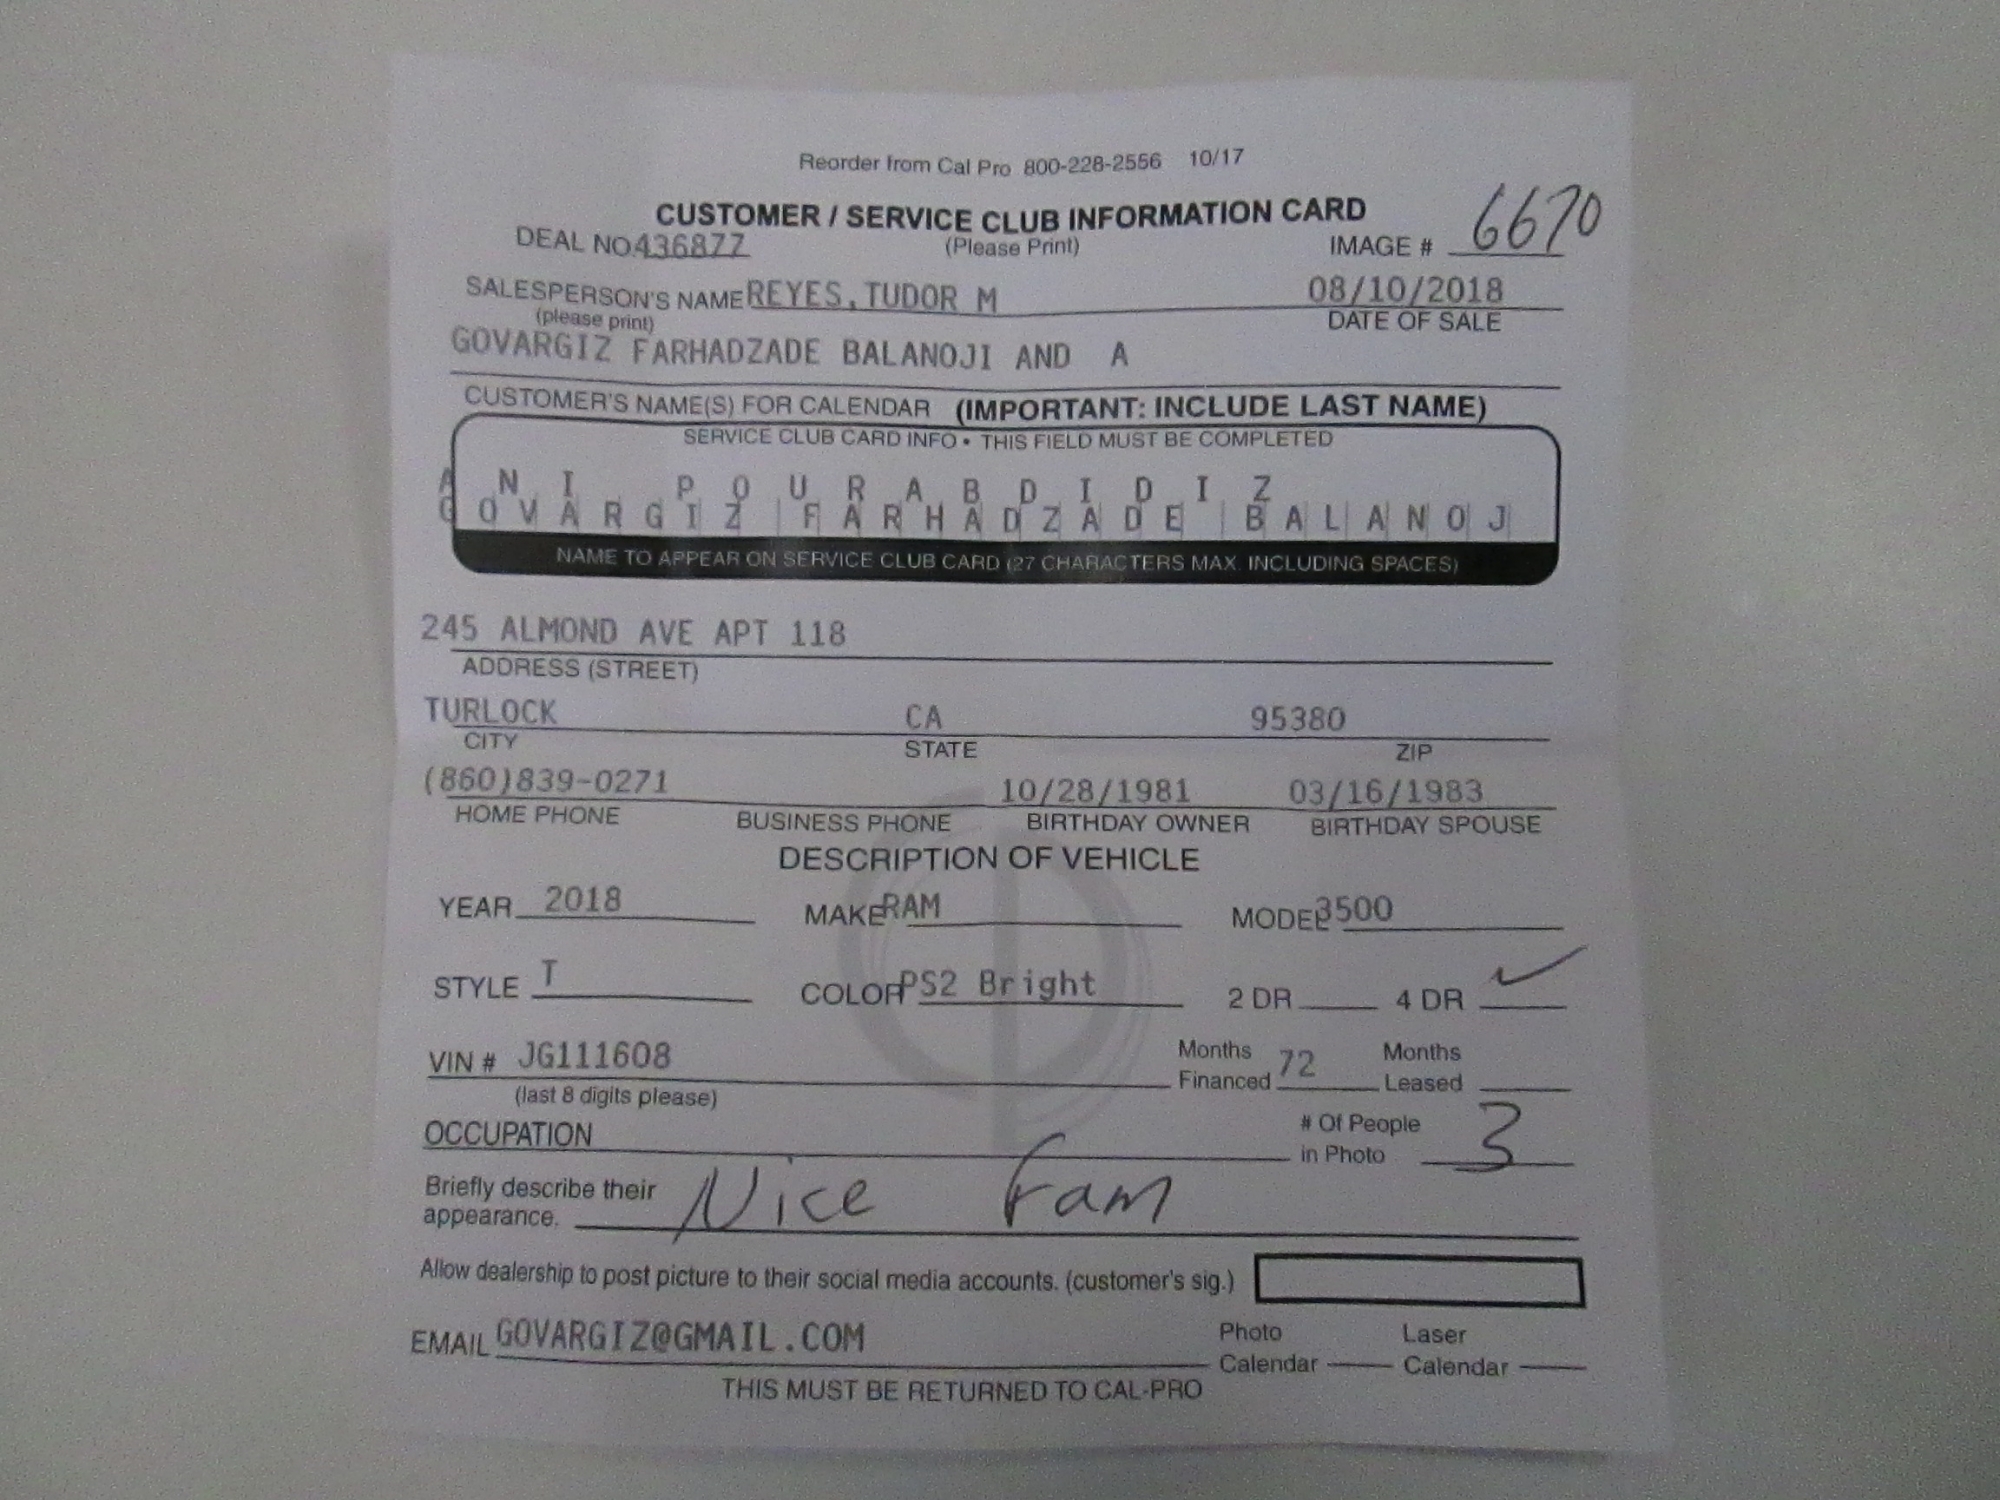 Reorder from Cal Pro 800-228-2556 10/17
CUSTOMER / SERVICE CLUB INFORMATION CARD
DEAL NO. 436877 (Please Print) IMAGE # 6670
SALESPERSON'S NAME REYES, TUDOR M 08/10/2018
(please print) DATE OF SALE
GOVARGIZ FARHADZADE BALANOJI AND A
CUSTOMER'S NAME(S) FOR CALENDAR (IMPORTANT: INCLUDE LAST NAME)
SERVICE CLUB CARD INFO • THIS FIELD MUST BE COMPLETED
A N I P O U R A B D I D I Z
G O V A R G I Z F A R H A D Z A D E B A L A N O J
NAME TO APPEAR ON SERVICE CLUB CARD (27 CHARACTERS MAX. INCLUDING SPACES)
245 ALMOND AVE APT 118
ADDRESS (STREET)
TURLOCK CA 95380
CITY STATE ZIP
(860)839-0271 10/28/1981 03/16/1983
HOME PHONE BUSINESS PHONE BIRTHDAY OWNER BIRTHDAY SPOUSE
DESCRIPTION OF VEHICLE
YEAR 2018 MAKE RAM MODEL 3500
STYLE T COLOR PS2 Bright 2 DR 4 DR ✓
VIN # JG111608 Months Financed 72 Months Leased
(last 8 digits please)
OCCUPATION # Of People in Photo 3
Briefly describe their appearance. Nice Fam
Allow dealership to post picture to their social media accounts. (customer's sig.)
EMAIL GOVARGIZ@GMAIL.COM Photo Calendar Laser Calendar
THIS MUST BE RETURNED TO CAL-PRO